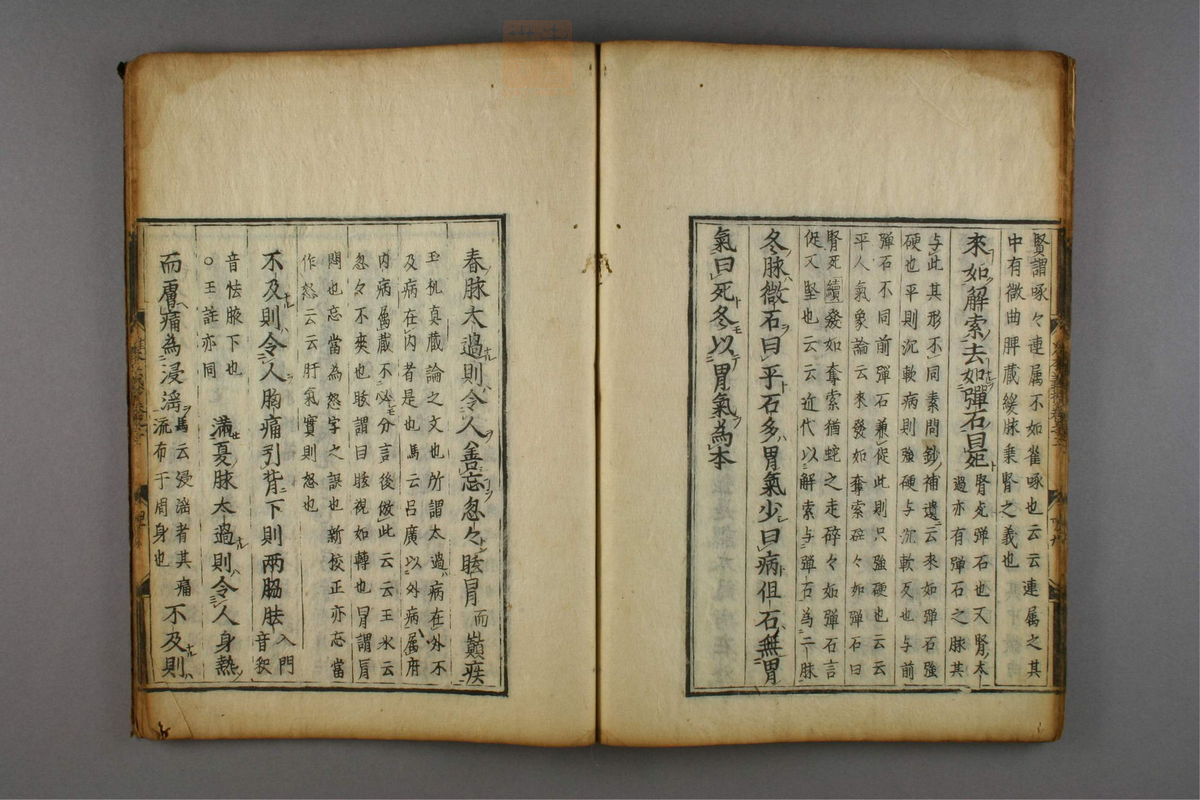 賢謂啄々連属不如雀啄也云云連属之其
中有微曲脾蔵緩脉乗腎之義也
来如解索去如彈石曰死
腎死弾石也又腎本
過亦有弾石之脉其
与此其形不同素問鈔補遺云来如弾石強
硬也平則沉軟病則強硬与沉軟反也与前
弾石不同前弾石兼促此則只強硬也云云
平人氣象論云来發如奪索碎々如弾石曰
腎死續發如奪索猶蛇之走碎々如弾石言
促又堅也云云近代以解索与弾石為二脉
冬脉微石曰平石多胃氣少曰病但石無胃
氣曰死冬以胃氣為本
春脉太過則令人善忘忽々眩冒而巓疾
玉机真蔵論之文也所謂太過病在外不
及病在内者是也馬云呂廣以外病属府
内病属蔵不必分言後倣此云云王氷云
忽々不爽也眩謂目眩視如轉也冒謂冐
悶也忘當為怒字之誤也新校正亦忘當
作怒云云肝氣實則怒也
不及則令人胸痛引背下則两脇胠
入門
音釈
音怯腋下也
○王註亦同
滿夏脉太過則令人身熱
而膚痛為浸淫
馬云浸淫者其痛
流布于周身也
不及則